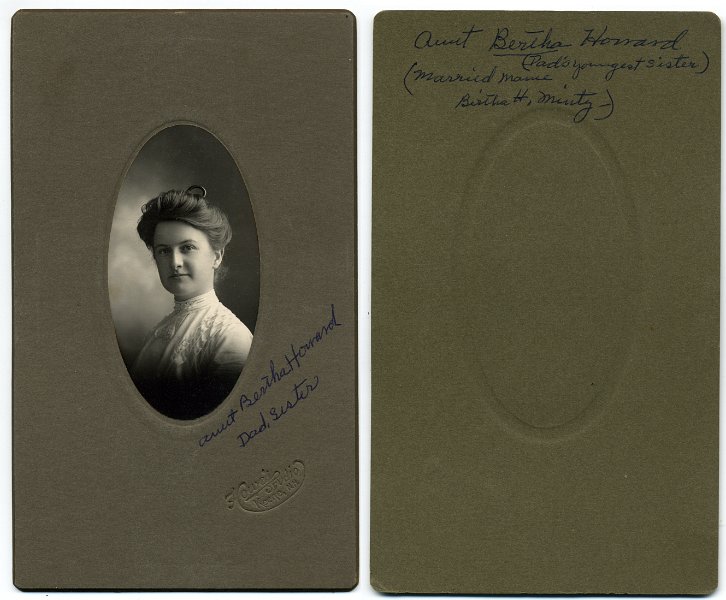 Aunt Bertha Howard
Dad, Sister
Studio
Aunt Bertha Howard
(Dad's youngest Sister)
(Married name
Birtha H, Mintz)